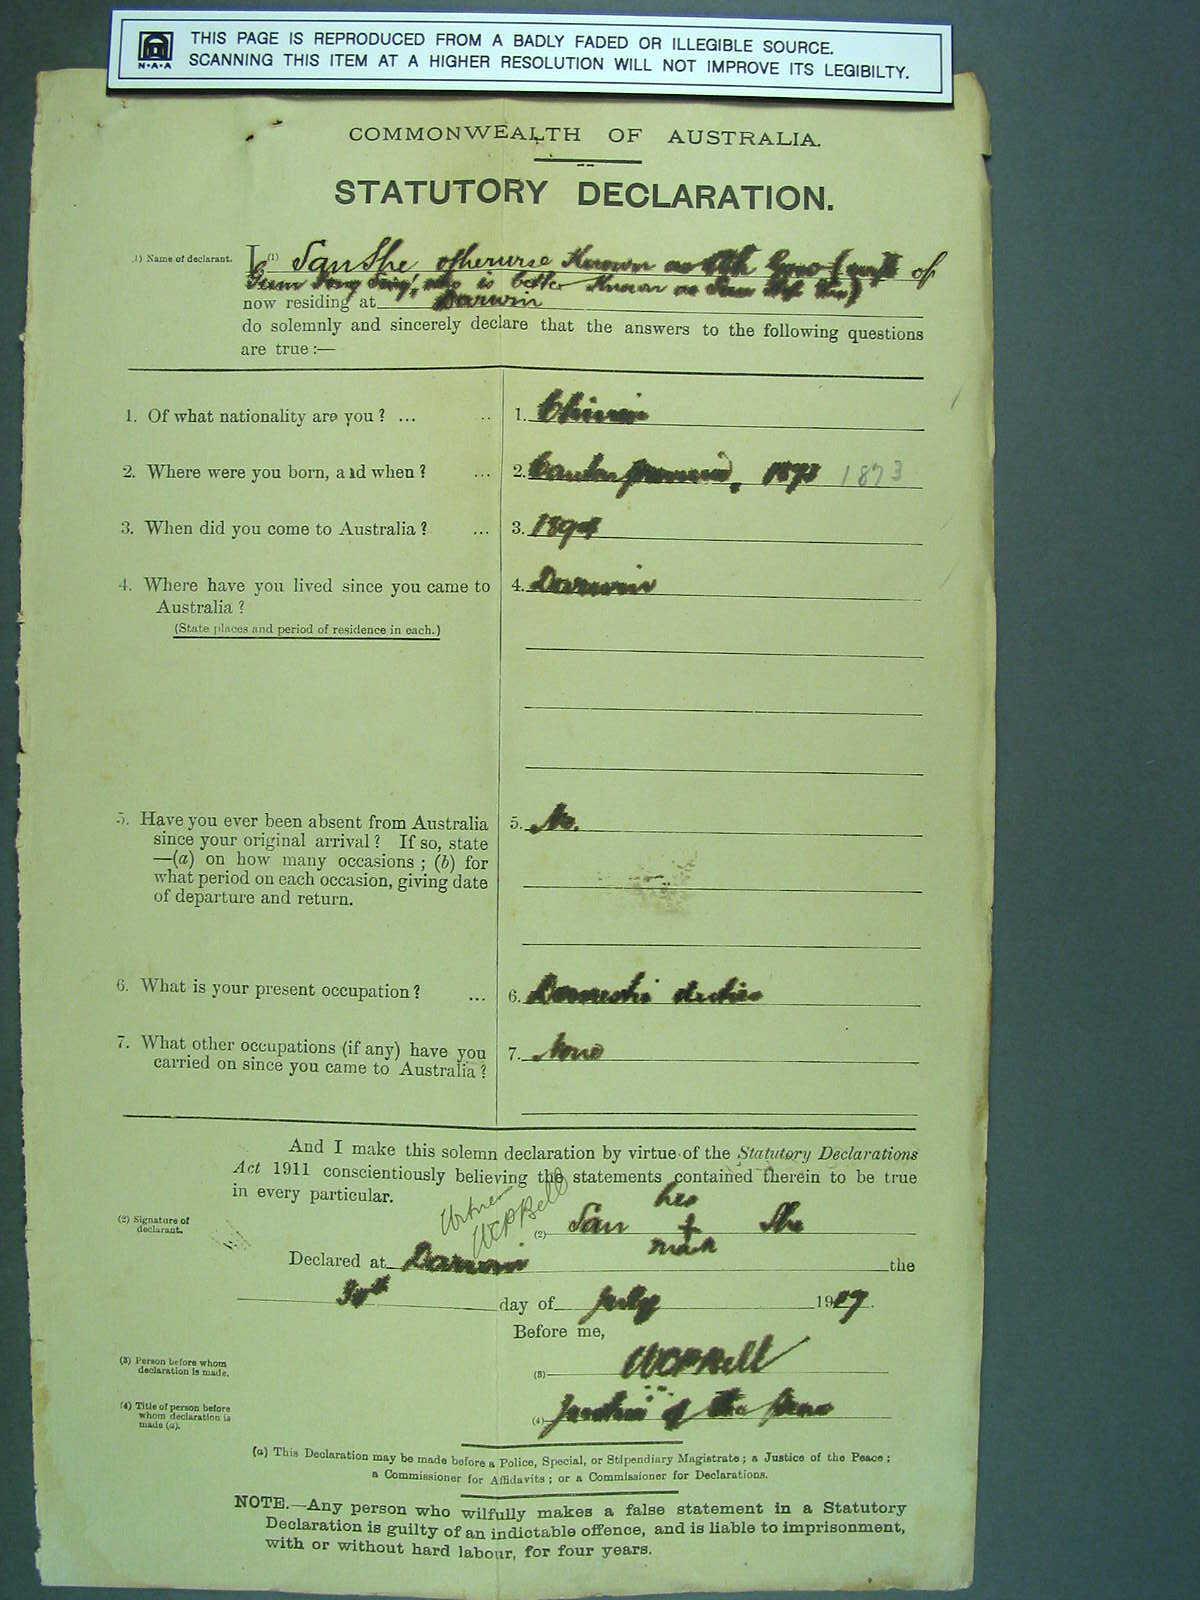 THIS PAGE IS REPRODUCED FROM A BADLY FADED OR ILLEGIBLE SOURCE.
SCANNING THIS ITEM AT A HIGHER RESOLUTION WILL NOT IMPROVE ITS LEGIBILTY.
N·A·A
COMMONWEALTH OF AUSTRALIA.
STATUTORY DECLARATION.
(1) Name of declarant. I, (1) San She otherwise Known as (wife of
who is better Known as
now residing at Darwin
do solemnly and sincerely declare that the answers to the following questions
are true:—
1. Of what nationality are you? ... 1. Chinese
2. Where were you born, and when? ... 2. Canton province, 1873 1873
3. When did you come to Australia? ... 3.
4. Where have you lived since you came to 4. Darwin
Australia?
(State places and period of residence in each.)
5. Have you ever been absent from Australia 5. No.
since your original arrival? If so, state
—(a) on how many occasions; (b) for
what period on each occasion, giving date
of departure and return.
6. What is your present occupation? ... 6. Domestic duties
7. What other occupations (if any) have you 7. None
carried on since you came to Australia?
And I make this solemn declaration by virtue of the Statutory Declarations
Act 1911 conscientiously believing the statements contained therein to be true
in every particular.
Witness
WCPBell
her
(2) Signature of declarant. (2) San + She
mark
Declared at Darwin the
30th day of July 1917.
Before me,
(3) Person before whom declaration is made. (3) WCPBell
(4) Title of person before whom declaration is made (a). (4) Justice of the Peace
(a) This Declaration may be made before a Police, Special, or Stipendiary Magistrate; a Justice of the Peace;
a Commissioner for Affidavits; or a Commissioner for Declarations.
NOTE.—Any person who wilfully makes a false statement in a Statutory
Declaration is guilty of an indictable offence, and is liable to imprisonment,
with or without hard labour, for four years.